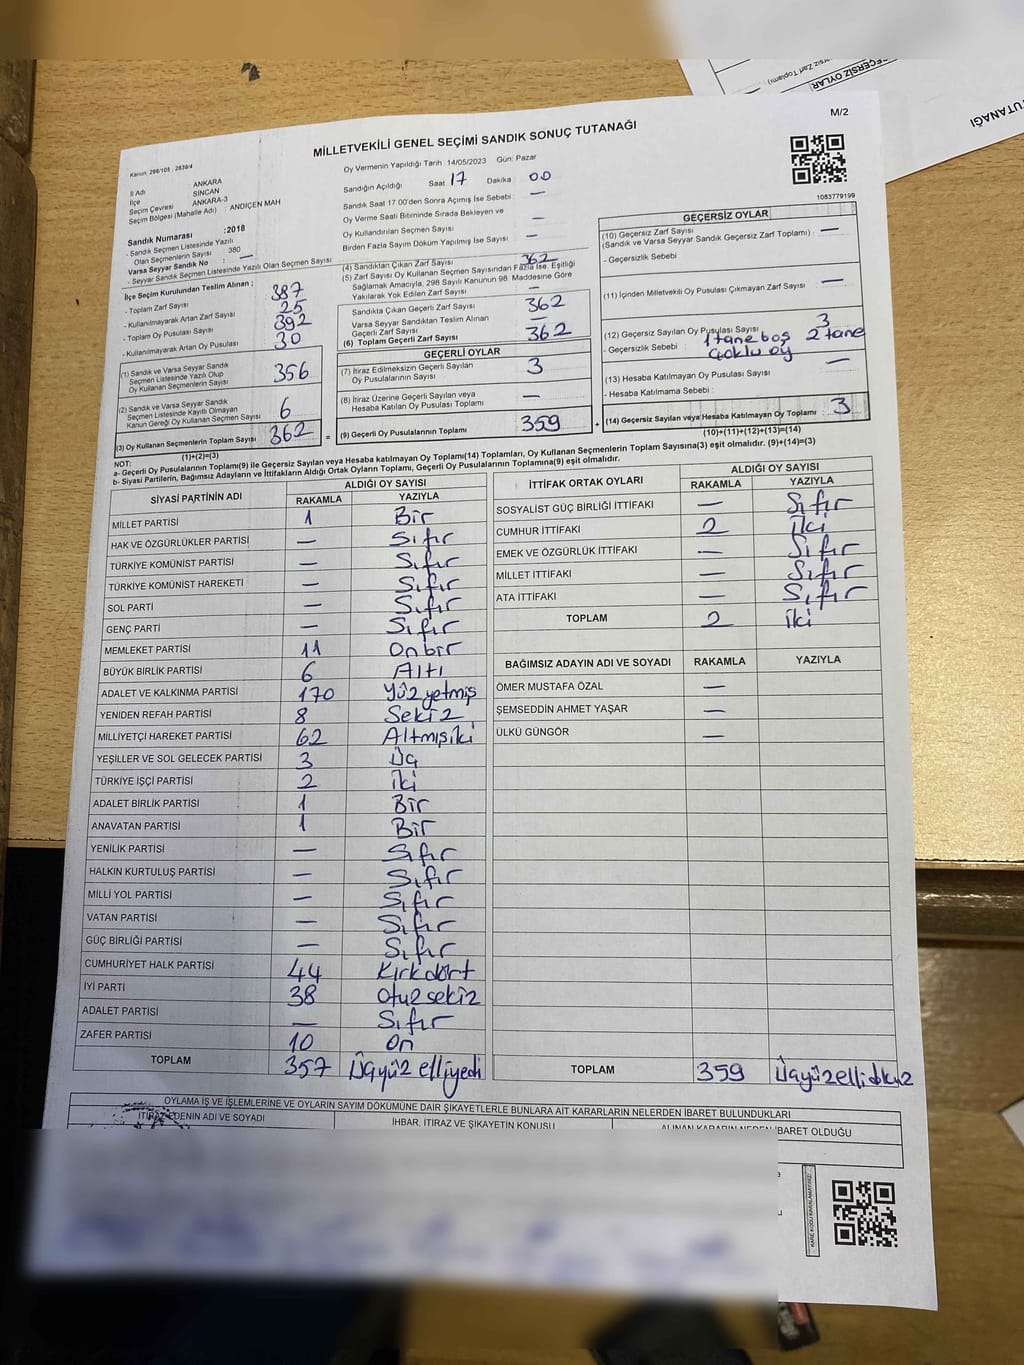 M/2
MİLLETVEKİLİ GENEL SEÇİMİ SANDIK SONUÇ TUTANAĞI
Kanun: 298/105 , 2839/4
İl Adı ANKARA
İlçe SİNCAN
Seçim Çevresi ANKARA-3
Seçim Bölgesi (Mahalle Adı) : ANDİÇEN MAH
Sandık Numarası :2018
- Sandık Seçmen Listesinde Yazılı
Olan Seçmenlerin Sayısı 380
Varsa Seyyar Sandık No : —
- Seyyar Sandık Seçmen Listesinde Yazılı Olan Seçmen Sayısı
Oy Vermenin Yapıldığı Tarih :14/05/2023 Gün: Pazar
Sandığın Açıldığı Saat 17 Dakika : 00
Sandık Saat 17:00'den Sonra Açılmış İse Sebebi : —
Oy Verme Saati Bitiminde Sırada Bekleyen ve
Oy Kullandırılan Seçmen Sayısı —
Birden Fazla Sayım Döküm Yapılmış İse Sayısı —
1083779199
İlçe Seçim Kurulundan Teslim Alınan ;
- Toplam Zarf Sayısı 387
- Kullanılmayarak Artan Zarf Sayısı 25
- Toplam Oy Pusulası Sayısı 392
- Kullanılmayarak Artan Oy Pusulası 30
(1) Sandık ve Varsa Seyyar Sandık
Seçmen Listesinde Yazılı Olup
Oy Kullanan Seçmenlerin Sayısı 356
(2) Sandık ve Varsa Seyyar Sandık
Seçmen Listesinde Kayıtlı Olmayan
Kanun Gereği Oy Kullanan Seçmen Sayısı 6
(3) Oy Kullanan Seçmenlerin Toplam Sayısı 362
(1)+(2)=(3)
(4) Sandıktan Çıkan Zarf Sayısı 362
(5) Zarf Sayısı Oy Kullanan Seçmen Sayısından Fazla İse, Eşitliği
Sağlamak Amacıyla, 298 Sayılı Kanunun 98. Maddesine Göre
Yakılarak Yok Edilen Zarf Sayısı —
Sandıkta Çıkan Geçerli Zarf Sayısı 362
Varsa Seyyar Sandıktan Teslim Alınan
Geçerli Zarf Sayısı —
(6) Toplam Geçerli Zarf Sayısı 362
GEÇERLİ OYLAR
(7) İtiraz Edilmeksizin Geçerli Sayılan
Oy Pusulalarının Sayısı 3
(8) İtiraz Üzerine Geçerli Sayılan veya
Hesaba Katılan Oy Pusulası Toplamı —
= (9) Geçerli Oy Pusulalarının Toplamı 359 +
GEÇERSİZ OYLAR
(10) Geçersiz Zarf Sayısı
(Sandık ve Varsa Seyyar Sandık Geçersiz Zarf Toplamı) : —
- Geçersizlik Sebebi
(11) İçinden Milletvekili Oy Pusulası Çıkmayan Zarf Sayısı : —
(12) Geçersiz Sayılan Oy Pusulası Sayısı 3
- Geçersizlik Sebebi : 1 tane boş 2 tane
çoklu oy
(13) Hesaba Katılmayan Oy Pusulası Sayısı —
- Hesaba Katılmama Sebebi :
(14) Geçersiz Sayılan veya Hesaba Katılmayan Oy Toplamı : 3
(10)+(11)+(12)+(13)=(14)
NOT:
a- Geçerli Oy Pusulalarının Toplamı(9) ile Geçersiz Sayılan veya Hesaba Katılmayan Oy Toplamı(14) Toplamları, Oy Kullanan Seçmenlerin Toplam Sayısına(3) eşit olmalıdır. (9)+(14)=(3)
b- Siyasi Partilerin, Bağımsız Adayların ve İttifakların Aldığı Ortak Oyların Toplamı, Geçerli Oy Pusulalarının Toplamına(9) eşit olmalıdır.
SİYASİ PARTİNİN ADI ALDIĞI OY SAYISI
RAKAMLA YAZIYLA
MİLLET PARTİSİ 1 Bir
HAK VE ÖZGÜRLÜKLER PARTİSİ — Sıfır
TÜRKİYE KOMÜNİST PARTİSİ — Sıfır
TÜRKİYE KOMÜNİST HAREKETİ — Sıfır
SOL PARTİ — Sıfır
GENÇ PARTİ — Sıfır
MEMLEKET PARTİSİ 11 Onbir
BÜYÜK BİRLİK PARTİSİ 6 Altı
ADALET VE KALKINMA PARTİSİ 170 Yüz yetmiş
YENİDEN REFAH PARTİSİ 8 Sekiz
MİLLİYETÇİ HAREKET PARTİSİ 62 Altmışiki
YEŞİLLER VE SOL GELECEK PARTİSİ 3 Üç
TÜRKİYE İŞÇİ PARTİSİ 2 İki
ADALET BİRLİK PARTİSİ 1 Bir
ANAVATAN PARTİSİ 1 Bir
YENİLİK PARTİSİ — Sıfır
HALKIN KURTULUŞ PARTİSİ — Sıfır
MİLLİ YOL PARTİSİ — Sıfır
VATAN PARTİSİ — Sıfır
GÜÇ BİRLİĞİ PARTİSİ — Sıfır
CUMHURİYET HALK PARTİSİ 44 Kırkdört
İYİ PARTİ 38 Otuzsekiz
ADALET PARTİSİ — Sıfır
ZAFER PARTİSİ 10 On
TOPLAM 357 Üçyüz elliyedi
İTTİFAK ORTAK OYLARI ALDIĞI OY SAYISI
RAKAMLA YAZIYLA
SOSYALİST GÜÇ BİRLİĞİ İTTİFAKI — Sıfır
CUMHUR İTTİFAKI 2 İki
EMEK VE ÖZGÜRLÜK İTTİFAKI — Sıfır
MİLLET İTTİFAKI — Sıfır
ATA İTTİFAKI — Sıfır
TOPLAM 2 İki
BAĞIMSIZ ADAYIN ADI VE SOYADI RAKAMLA YAZIYLA
ÖMER MUSTAFA ÖZAL —
ŞEMSEDDİN AHMET YAŞAR —
ÜLKÜ GÜNGÖR —
TOPLAM 359 Üçyüzellidokuz
OYLAMA İŞ VE İŞLEMLERİNE VE OYLARIN SAYIM DÖKÜMÜNE DAİR ŞİKAYETLERLE BUNLARA AİT KARARLARIN NELERDEN İBARET BULUNDUKLARI
İTİRAZ EDENİN ADI VE SOYADI İHBAR, İTİRAZ VE ŞİKAYETİN KONUSU ALINAN KARARIN NEDEN İBARET OLDUĞU